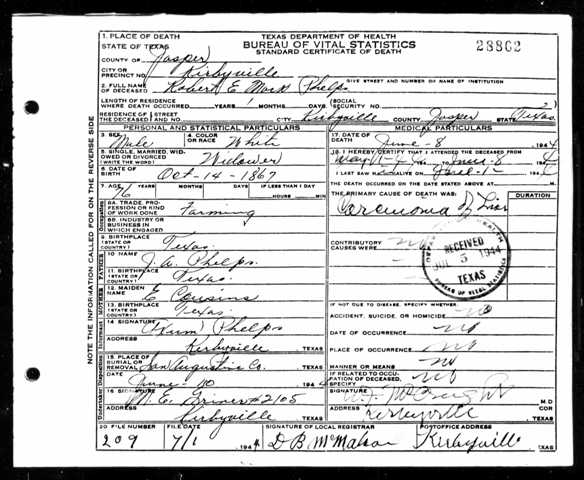 1. PLACE OF DEATH
STATE OF TEXAS
TEXAS DEPARTMENT OF HEALTH
BUREAU OF VITAL STATISTICS
STANDARD CERTIFICATE OF DEATH
28862
COUNTY OF Jasper
CITY OR
PRECINCT NO. Kirbyville
GIVE STREET AND NUMBER OR NAME OF INSTITUTION
2. FULL NAME
OF DECEASED Robert E. Phelps
LENGTH OF RESIDENCE
WHERE DEATH OCCURRED YEARS 1 MONTHS DAYS
(SOCIAL
(SECURITY NO.
RESIDENCE OF STREET
THE DECEASED AND NO. CITY Kirbyville COUNTY Jasper STATE Texas
PERSONAL AND STATISTICAL PARTICULARS
3. SEX Male
4. COLOR
OR RACE White
5. SINGLE, MARRIED, WID-
OWED OR DIVORCED
(WRITE THE WORD) Widower
6. DATE OF
BIRTH Oct-14-1867
7. AGE YEARS MONTHS DAYS IF LESS THAN 1 DAY
76 HOURS MIN
8A. TRADE, PRO-
FESSION OR KIND
OF WORK DONE Farming
8B. INDUSTRY OR
BUSINESS IN
WHICH ENGAGED
9. BIRTHPLACE
(STATE OR
COUNTRY) Texas
10 NAME J. W. Phelps
11. BIRTHPLACE
(STATE OR
COUNTRY) Texas
12. MAIDEN
NAME E Cousins
13. BIRTHPLACE
(STATE OR
COUNTRY) Texas
14. SIGNATURE Phelps
ADDRESS Kirbyville TEXAS
15. PLACE OF
BURIAL OR
REMOVAL San Augustine Co. TEXAS
DATE June 10 1944
16. SIGNATURE M. E. #2105
ADDRESS Kirbyville TEXAS
MEDICAL PARTICULARS
17. DATE OF
DEATH June-8 1944
18. I HEREBY CERTIFY THAT I ATTENDED THE DECEASED FROM
June-8
I LAST SAW ALIVE ON
THE DEATH OCCURRED ON THE DATE STATED ABOVE AT M.
THE PRIMARY CAUSE OF DEATH WAS: DURATION
of
CONTRIBUTORY
CAUSES WERE: no
RECEIVED
1944
TEXAS
BUREAU OF VITAL STATISTICS
IF NOT DUE TO DISEASE, SPECIFY WHETHER:
ACCIDENT, SUICIDE, OR HOMICIDE no
DATE OF OCCURRENCE no
PLACE OF OCCURRENCE no
MANNER OR MEANS no
IF RELATED TO OCCU-
PATION OF DECEASED,
SPECIFY no
SIGNATURE M D
ADDRESS Kirbyville TEXAS
20 FILE NUMBER FILE DATE SIGNATURE OF LOCAL REGISTRAR POSTOFFICE ADDRESS
209 7/1 1944 D B McMahon Kirbyville TEXAS
NOTE THE INFORMATION CALLED FOR ON THE REVERSE SIDE